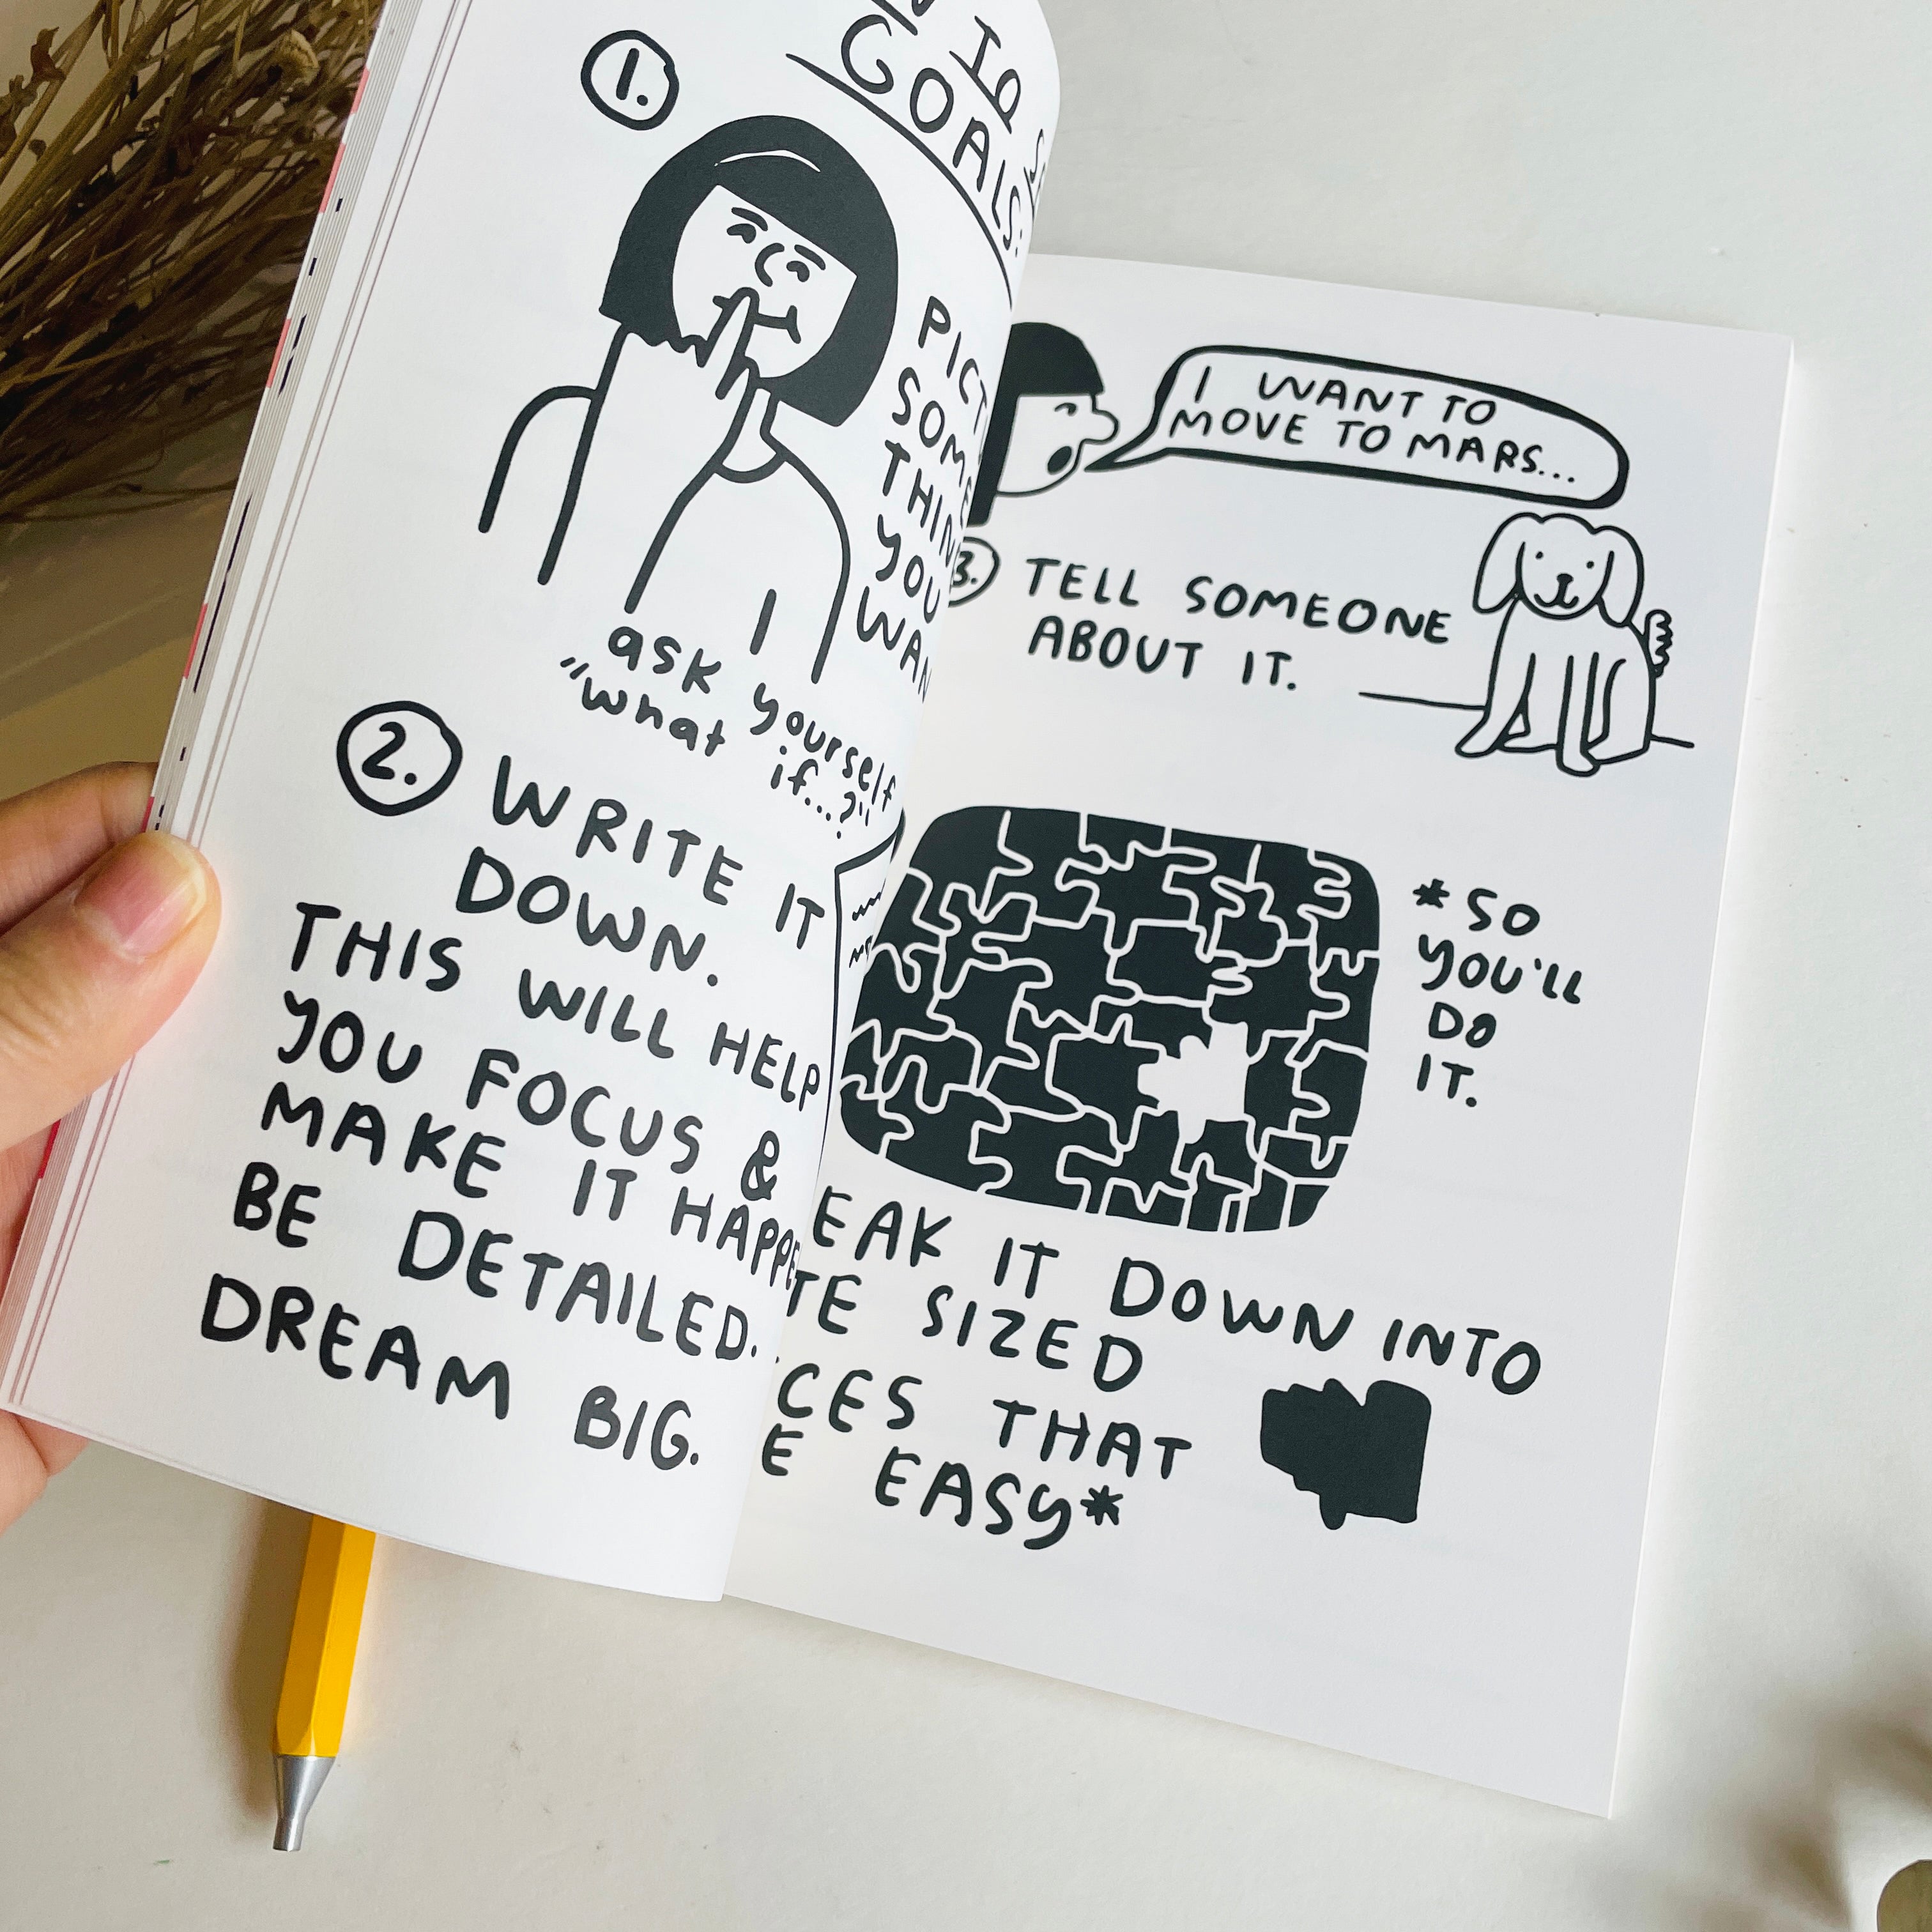 GOALS:
1.
PICT
SOME
THIN
YOU
WAN
ask yourself
"what if...?"
2. WRITE IT
DOWN.
THIS WILL HELP
YOU FOCUS &
MAKE IT HAPPE
BE DETAILED.
DREAM BIG.
I WANT TO
MOVE TO MARS...
3. TELL SOMEONE
ABOUT IT.
*SO
YOU'LL
DO
IT.
EAK IT DOWN INTO
TE SIZED
CES THAT
E EASY*